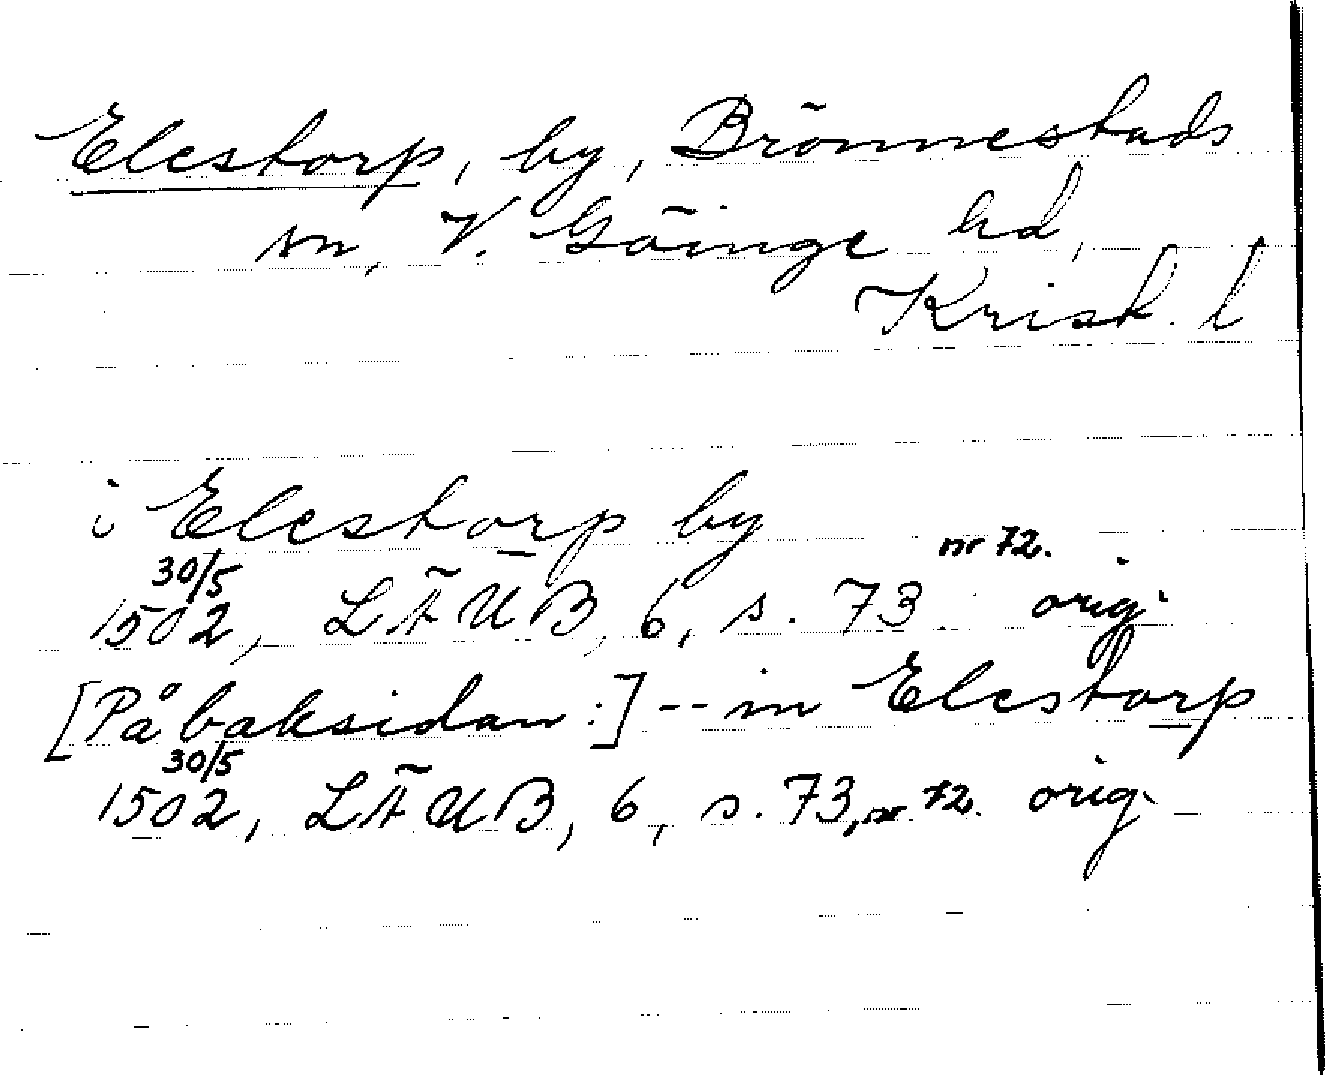 Elestorp, by, Brönnestads
sn, V. Göinge hd,
Krist. l
i Elestorp by
30/5 nr 72.
1502, LÄUB, 6, s. 73 orig.
[På baksidan:] -- in Elestorp
30/5
1502, LÄUB, 6, s. 73, nr 72. orig.